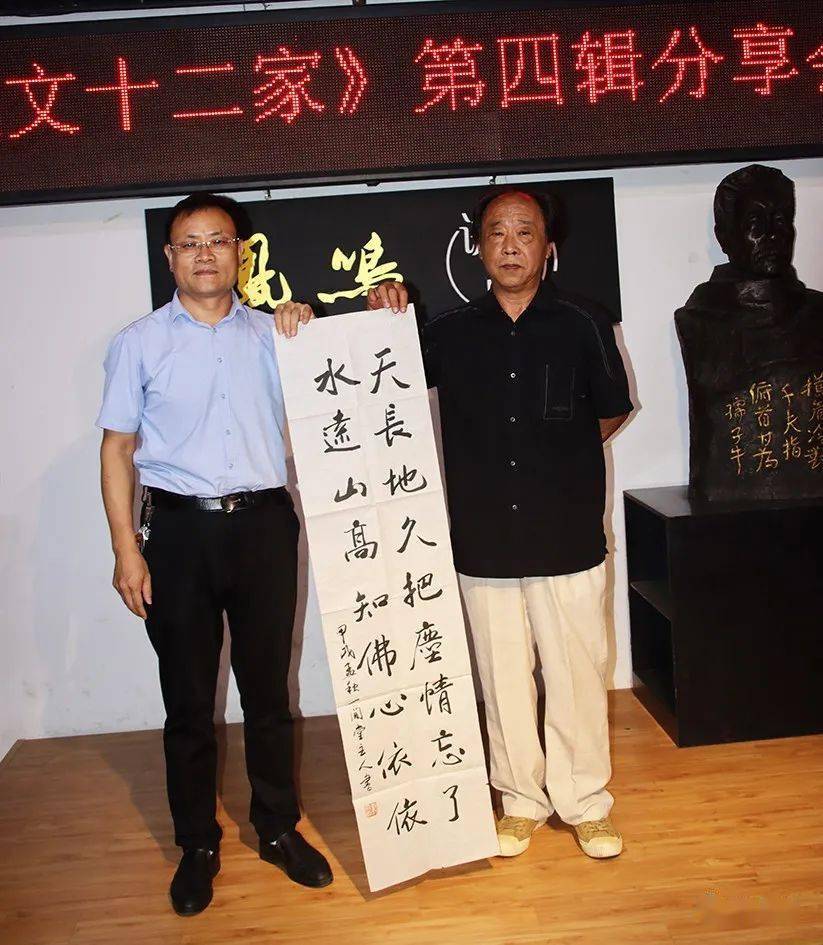 文十二家》第四辑分享会
鳴
天長地久把塵情忘了
水遠山髙知佛心依依
甲戌孟秋一堂主人書
横眉冷對
千夫指
俯首甘為
孺子牛